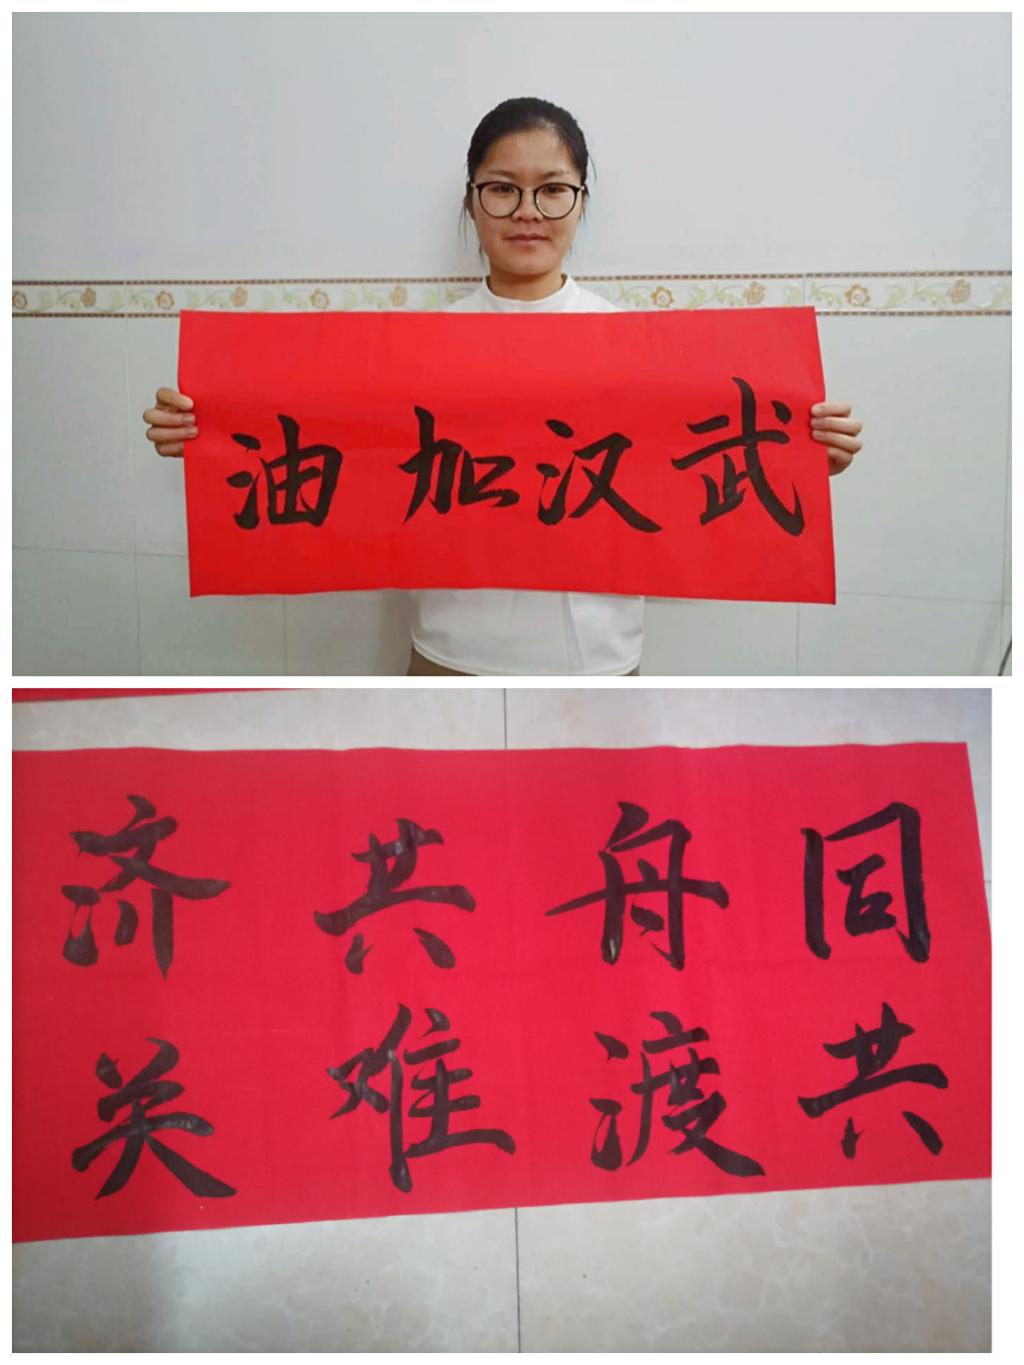 武汉加油
同舟共济
共渡难关